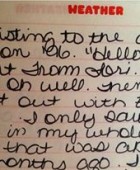 WEATHER
isting to the
on '26. "Hello
t from Lori.
Oh well. then
t out with
I only saw
in my whole
that was a
months ago